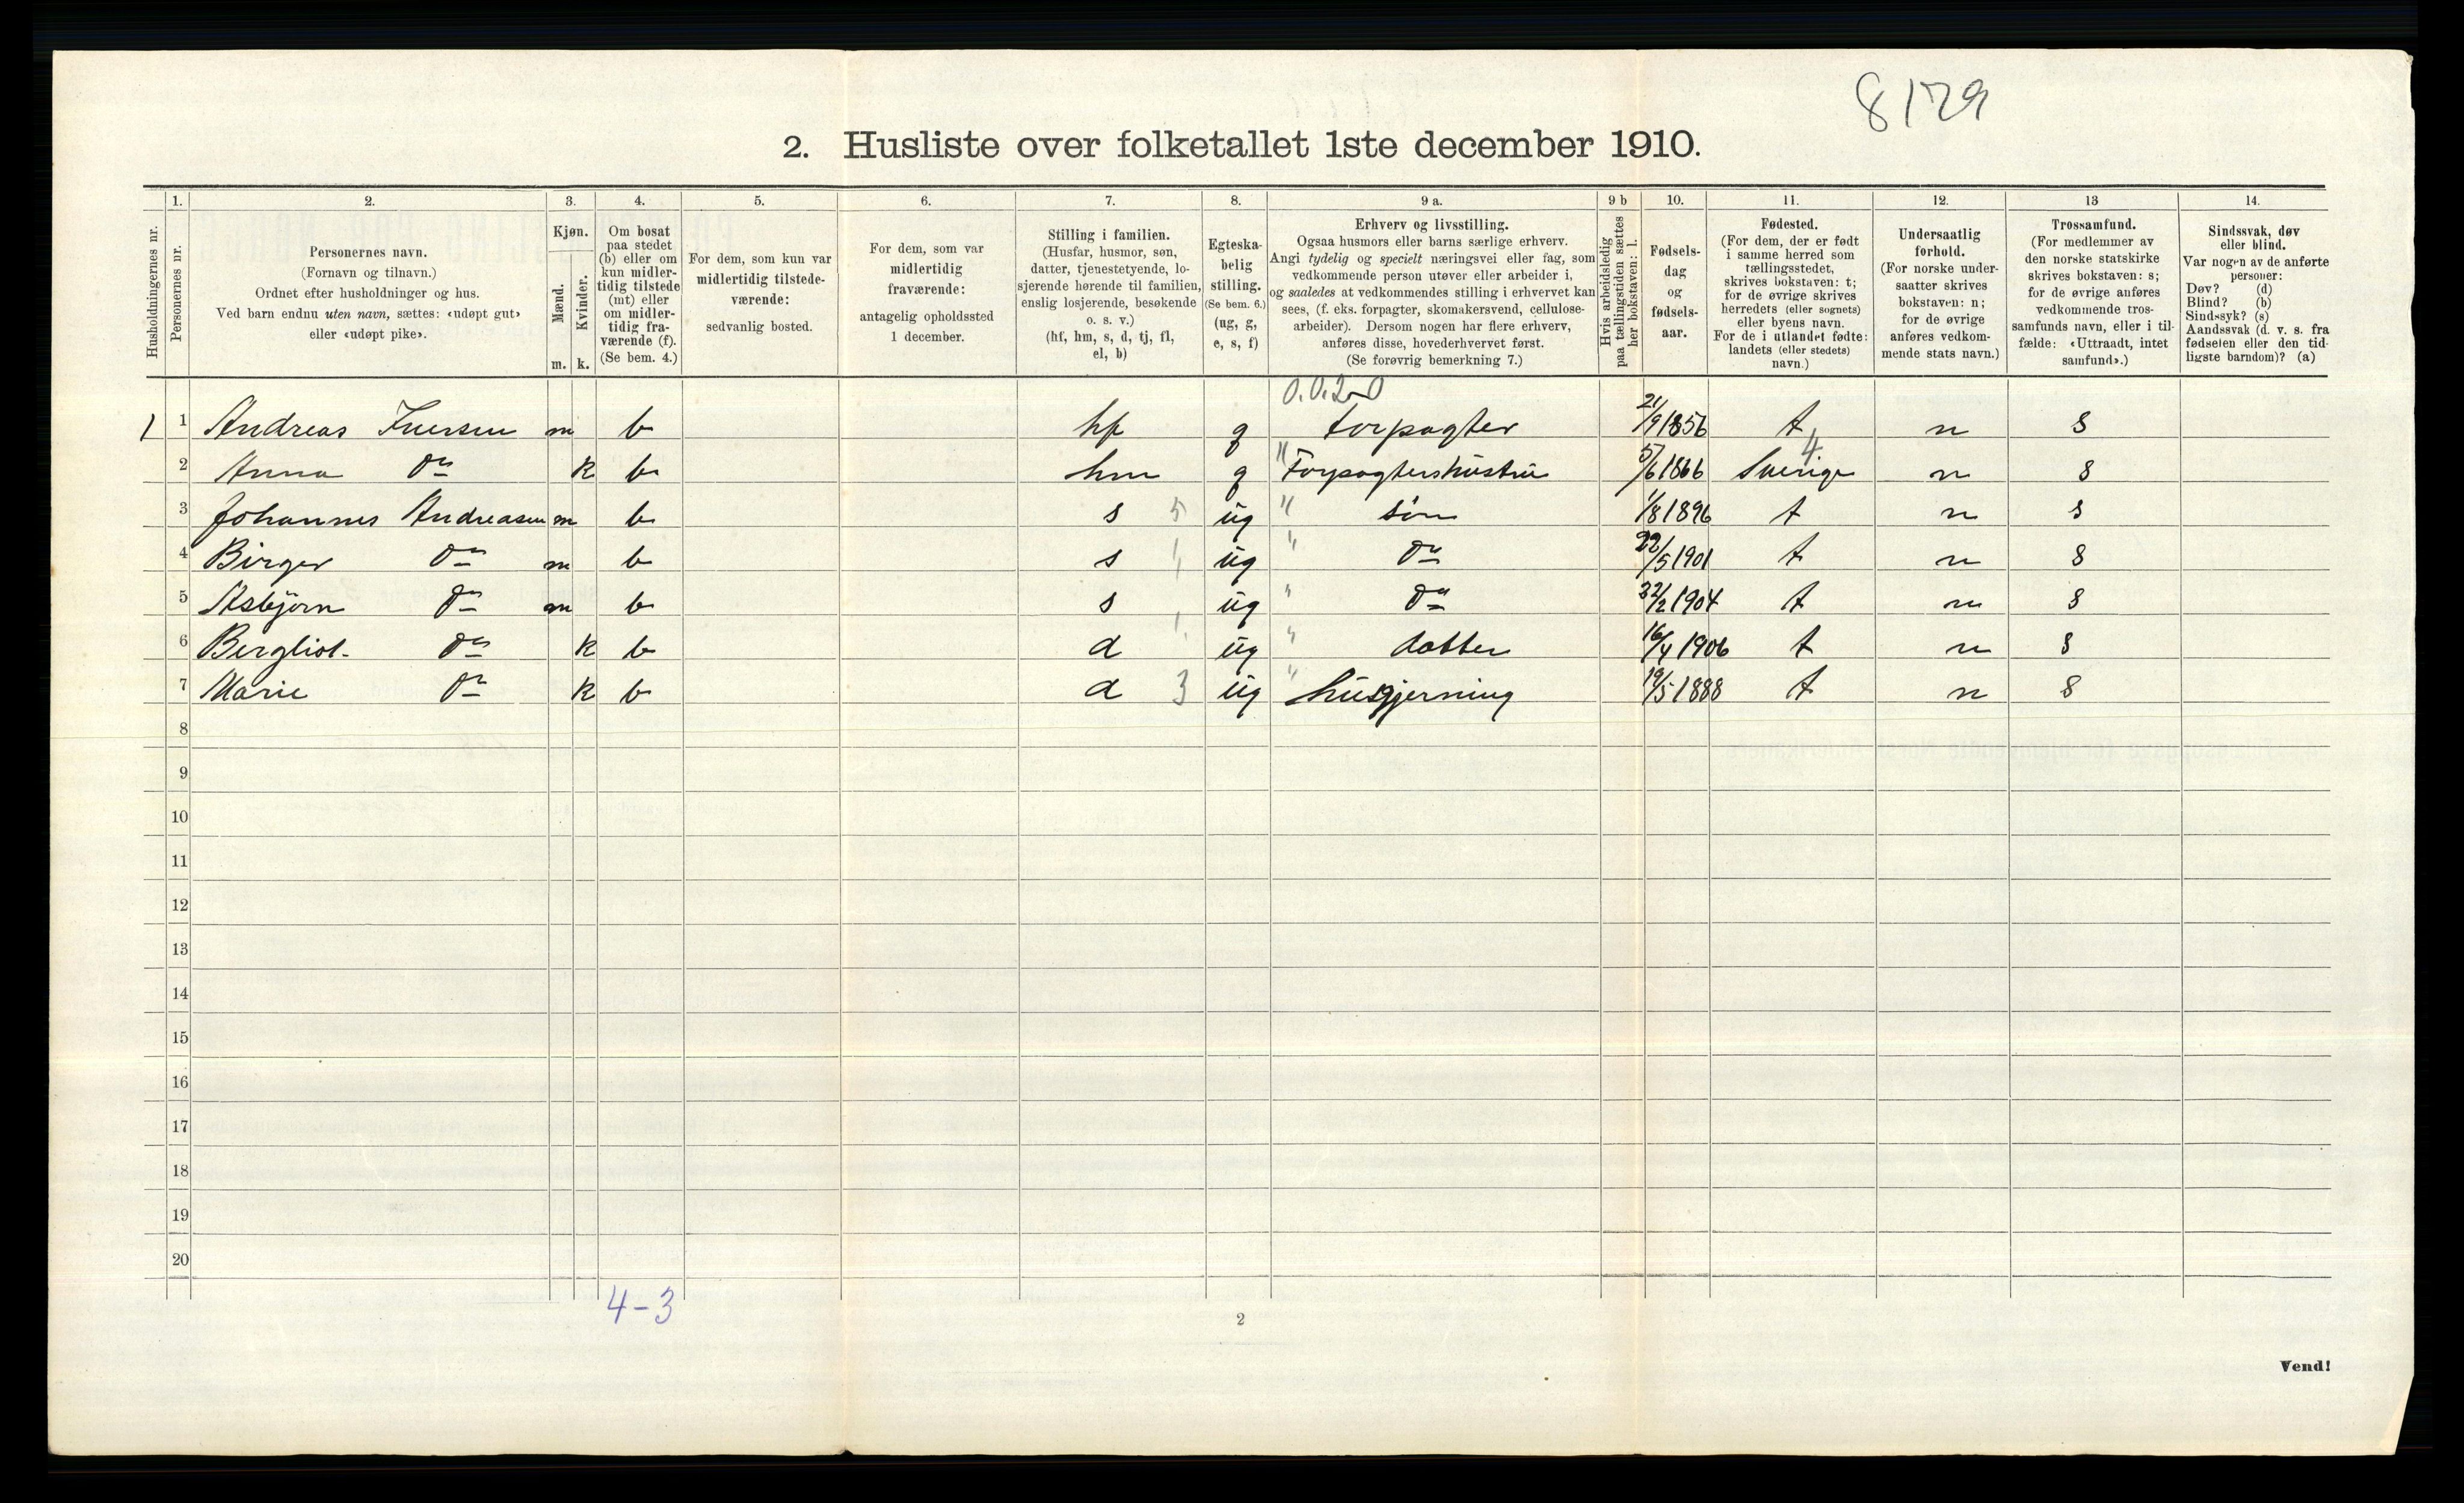 8129
2. Husliste over folketallet 1ste december 1910.
1. 2. 3. 4. 5. 6. 7. 8. 9 a. 9 b 10. 11. 12. 13 14.
Husholdningernes nr.
Personernes nr.
Personernes navn.
(Fornavn og tilnavn.)
Ordnet efter husholdninger og hus.
Ved barn endnu uten navn, sættes: «udøpt gut»
eller «udøpt pike».
Kjøn.
Mænd.
Kvinder.
m. k.
Om bosat
paa stedet
(b) eller om
kun midler-
tidig tilstede
(mt) eller
om midler-
tidig fra-
værende (f).
(Se bem. 4.)
For dem, som kun var
midlertidig tilstede-
værende:
sedvanlig bosted.
For dem, som var
midlertidig
fraværende:
antagelig opholdssted
1 december.
Stilling i familien.
(Husfar, husmor, søn,
datter, tjenestetyende, lo-
sjerende hørende til familien,
enslig losjerende, besøkende
o. s. v.)
(hf, hm, s, d, tj, fl,
el, b)
Egteska-
belig
stilling.
(Se bem. 6.)
(ug, g,
e, s, f)
Erhverv og livsstilling.
Ogsaa husmors eller barns særlige erhverv.
Angi tydelig og specielt næringsvei eller fag, som
vedkommende person utøver eller arbeider i,
og saaledes at vedkommendes stilling i erhvervet kan
sees, (f. eks. forpagter, skomakersvend, cellulose-
arbeider). Dersom nogen har flere erhverv,
anføres disse, hovederhvervet først.
(Se forøvrig bemerkning 7.)
Hvis arbeidsledig
paa tællingstiden sættes
her bokstaven: l.
Fødsels-
dag
og
fødsels-
aar.
Fødested.
(For dem, der er født
i samme herred som
tællingsstedet,
skrives bokstaven: t;
for de øvrige skrives
herredets (eller sognets)
eller byens navn.
For de i utlandet fødte:
landets (eller stedets)
navn.)
Undersaatlig
forhold.
(For norske under-
saatter skrives
bokstaven: n;
for de øvrige
anføres vedkom-
mende stats navn.)
Trossamfund.
(For medlemmer av
den norske statskirke
skrives bokstaven: s;
for de øvrige anføres
vedkommende tros-
samfunds navn, eller i til-
fælde: «Uttraadt, intet
samfund».)
Sindssvak, døv
eller blind.
Var nogen av de anførte
personer:
Døv? (d)
Blind? (b)
Sindssyk? (s)
Aandssvak (d. v. s. fra
fødselen eller den tid-
ligste barndom)? (a)
0.0.2-0
1 1 Andreas Iversen m b hf g forpagter 21/9 1856 t n s
2 Anna do k b hm g " Forpagtershustru 5/6 1866 Sverige 4 n s
3 Johannes Andreasen m b s 5 ug " søn 1/8 1896 t n s
4 Birger do m b s " ug " do 22/5 1901 t n s
5 Asbjørn do m b s ug " do 22/2 1904 t n s
6 Bergliot do k b d " ug " datter 16/4 1906 t n s
7 Marie do k b d 3 ug " husgjerning 19/5 1888 t n s
8
9
10
11
12
13
14
15
16
17
18
19
20
4-3
2
Vend!